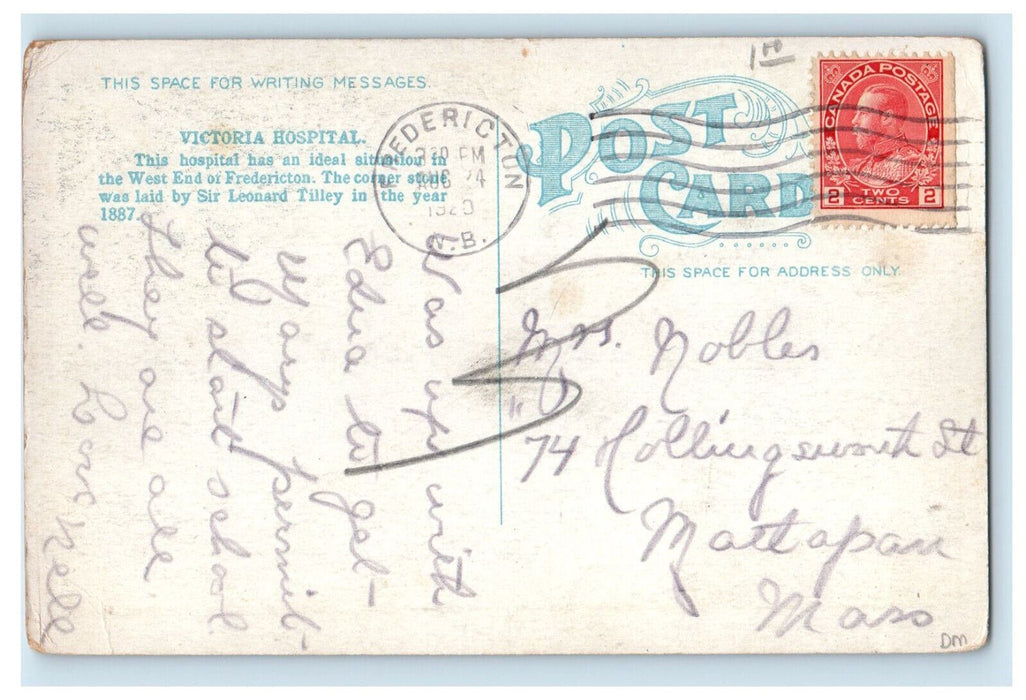 THIS SPACE FOR WRITING MESSAGES.
VICTORIA HOSPITAL.
This hospital has an ideal situation in
the West End of Fredericton. The corner stone
was laid by Sir Leonard Tilley in the year
1887.
FREDERICTON
2 30 PM
AUG 24
192
N.B.
POST
CARD
1.00
CANADA POSTAGE
2 TWO CENTS 2
THIS SPACE FOR ADDRESS ONLY.
Was up with
Edna to get
Marys permit
to start school
They are all
well. Love Nell
Mrs. Nobles
74 Hollingsworth St
Mattapan
Mass
DM